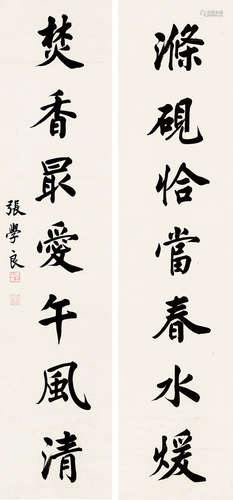 滌硯恰當春水煖
焚香最愛午風清
張學良